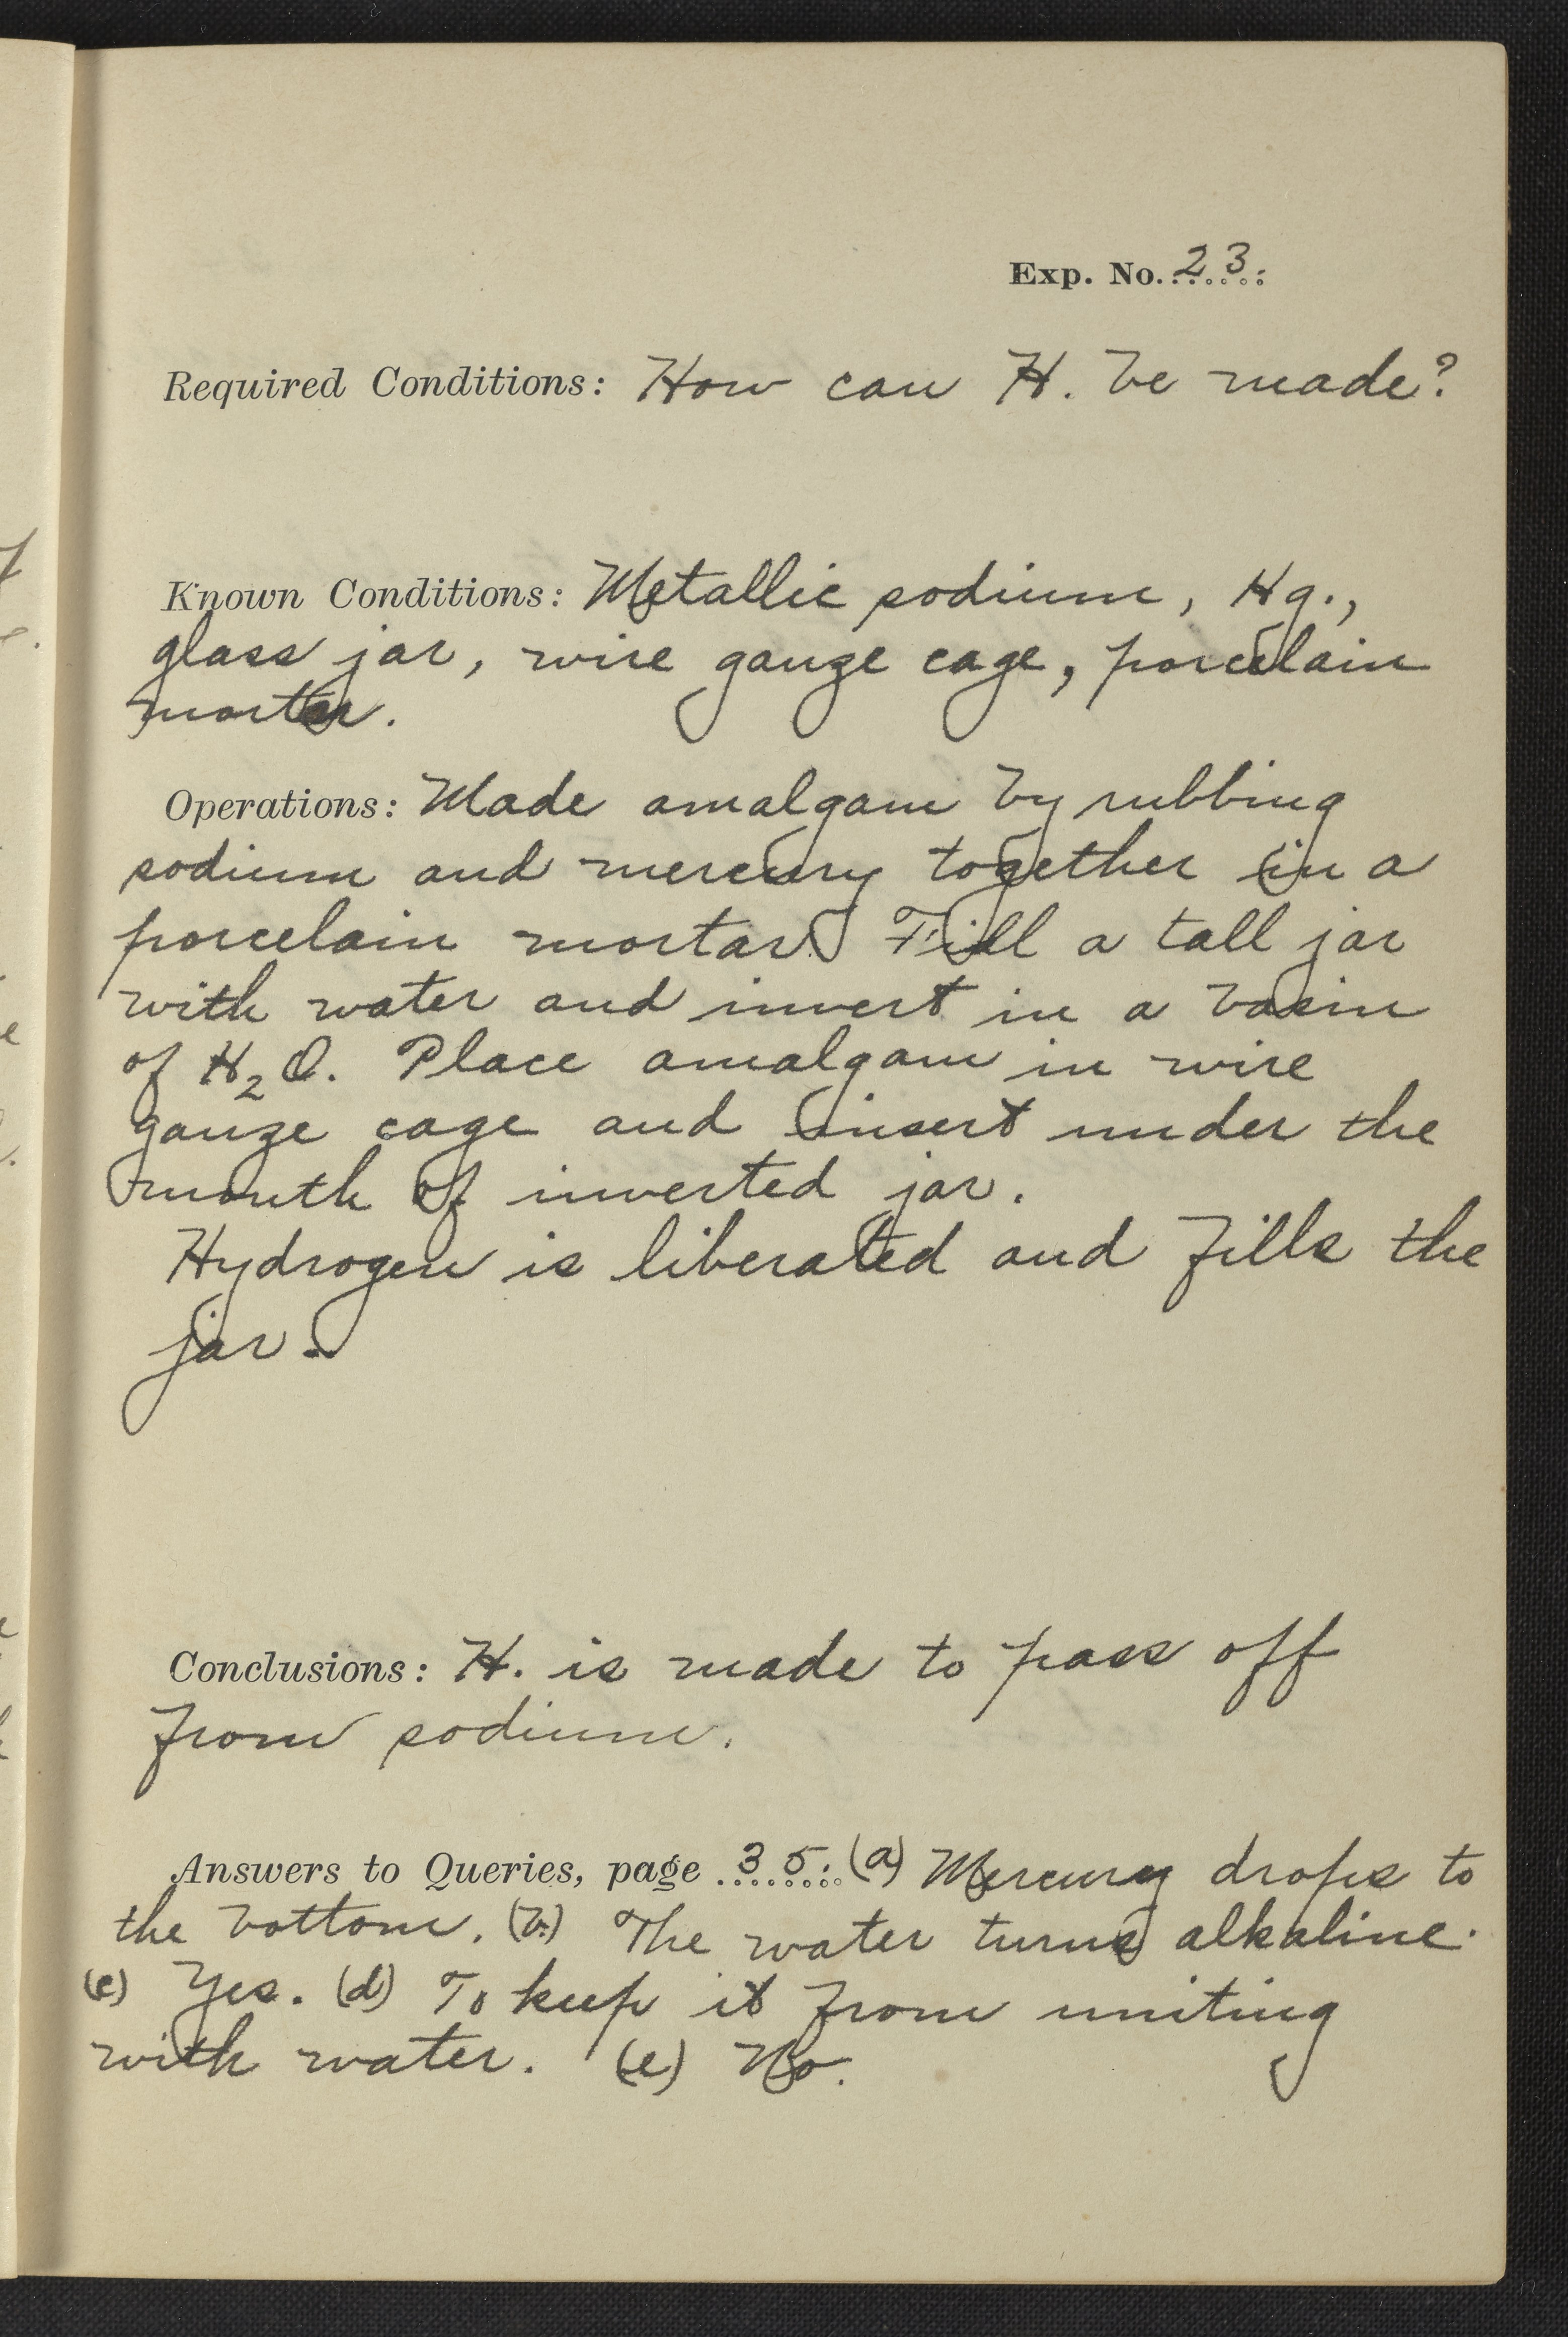 Exp. No. 23.
Required Conditions: How can H. be made?
Known Conditions: Metallic sodium, Hg.,
glass jar, wire gauze cage, porcelain
mortar.
Operations: Made amalgam by rubbing
sodium and mercury together in a
porcelain mortar. Fill a tall jar
with water and invert in a basin
of H₂O. Place amalgam in wire
gauze cage and insert under the
mouth of inverted jar.
Hydrogen is liberated and fills the
jar.
Conclusions: H. is made to pass off
from sodium.
Answers to Queries, page 35. (a) Mercury drops to
the bottom. (b.) The water turns alkaline.
(c) Yes. (d) To keep it from uniting
with water. (e) No.